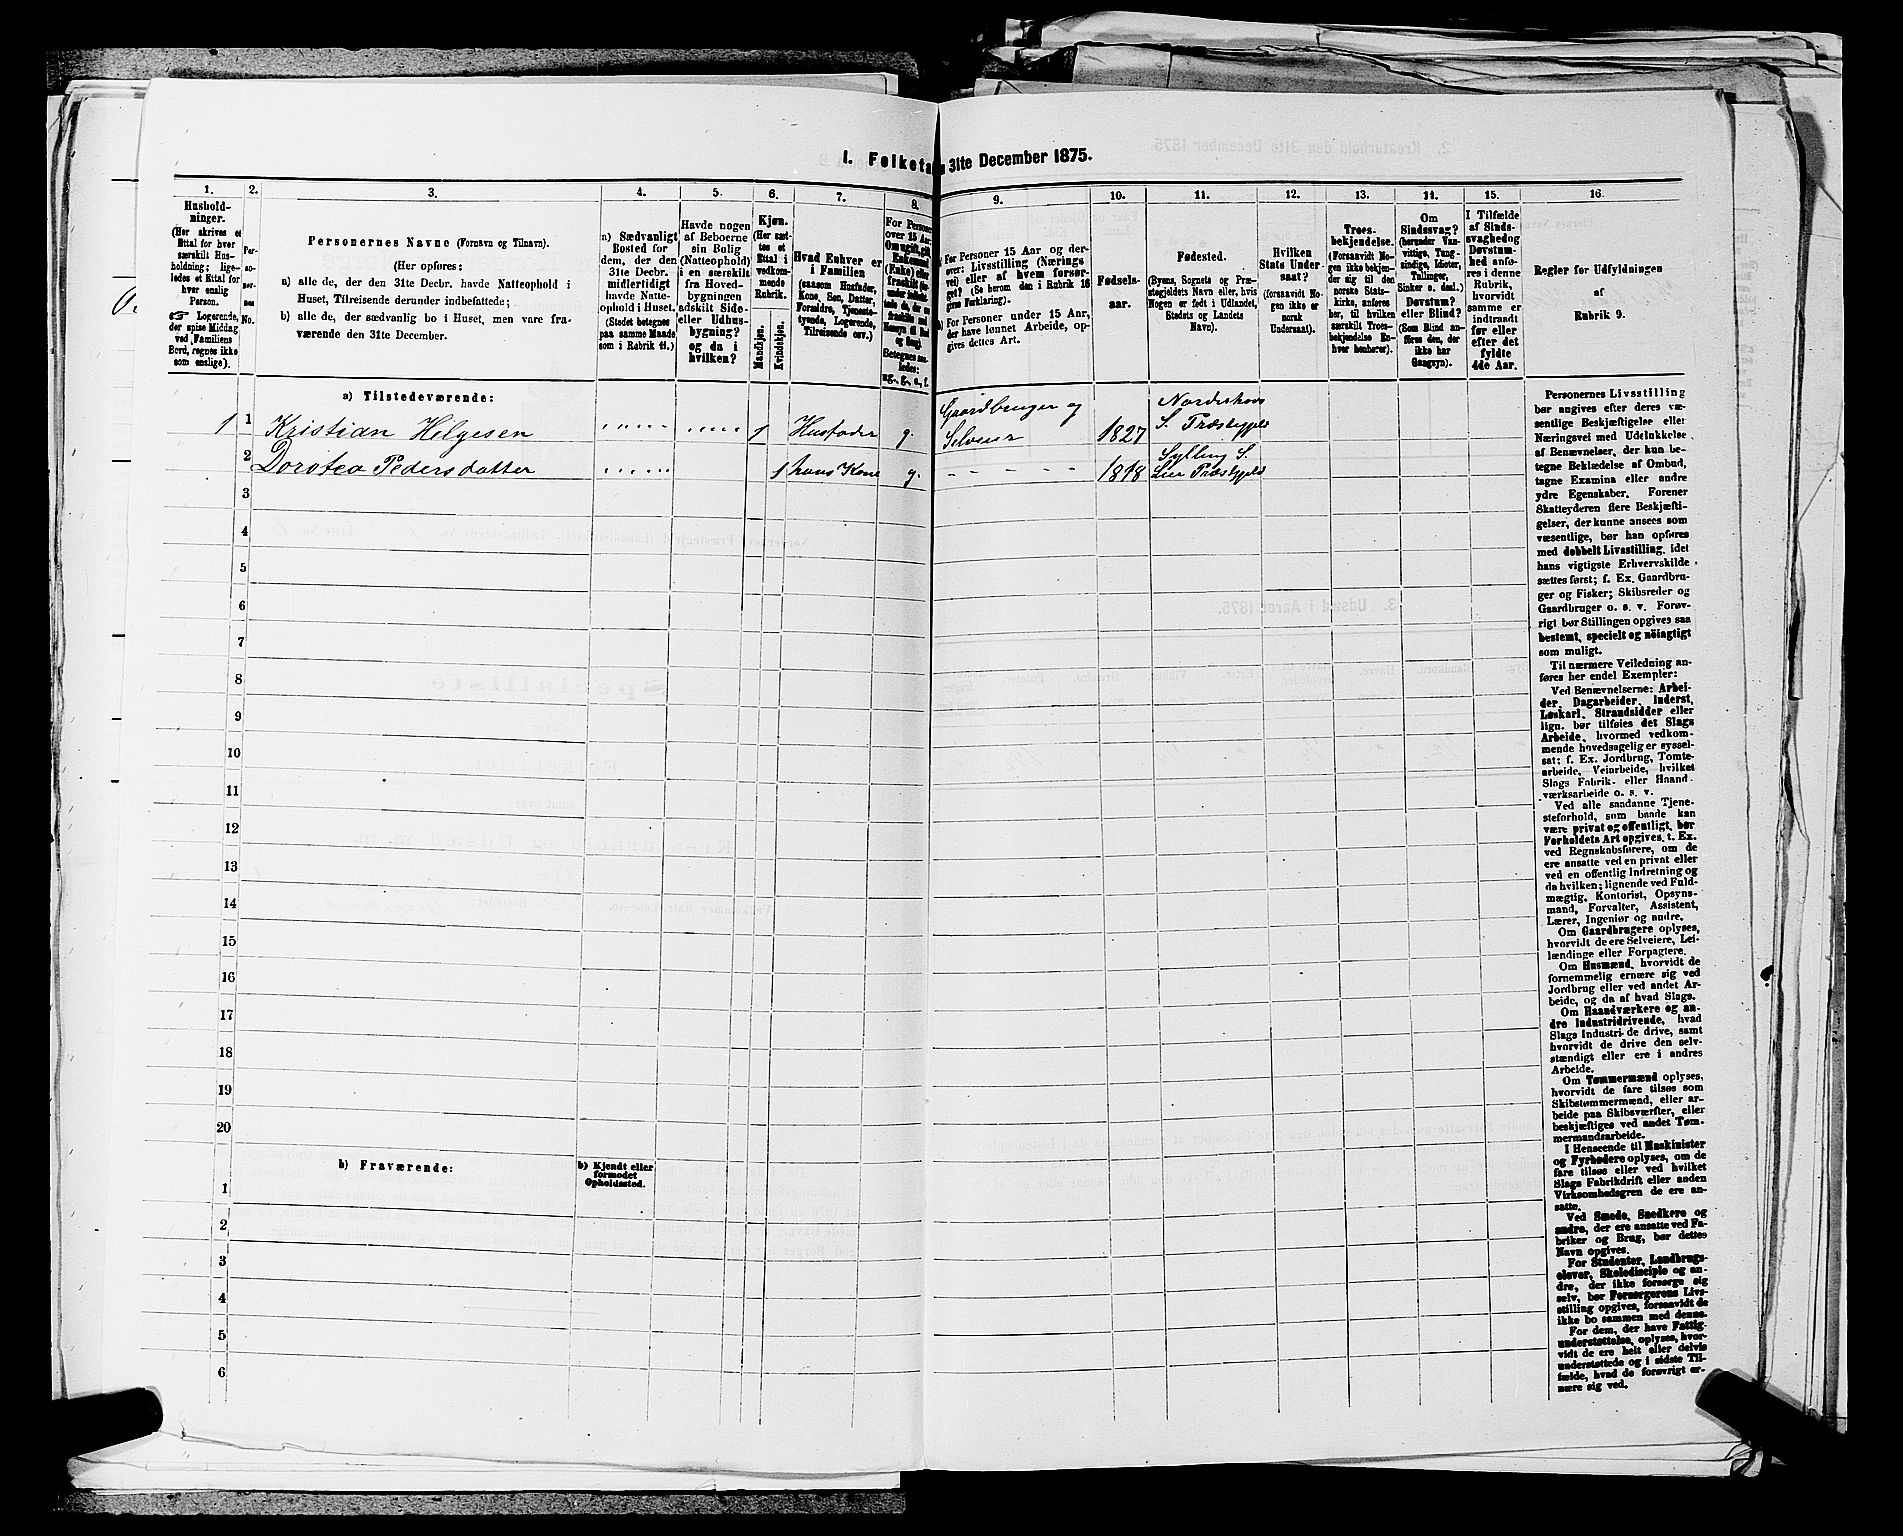 1. Folketa
n 31te December 1875.
1.
2.
3.
4.
5.
6.
7.
8.
9.
10.
11.
12.
13.
14.
15.
16
Hushold-
ninger.
(Her skrives et
Ettal for hver
særskilt Hus-
holdning; lige-
ledes et Ettal for
hver enslig
Person.
☞ Logerende,
der spise Middag
ved Familiens
Bord, regnes ikke
som enslige).
Per-
so-
ner-
nes
No.
Personernes Navne (Fornavn og Tilnavn).
(Her opføres:
a) alle de, der den 31te Decbr. havde Natteophold i
Huset, Tilreisende derunder indbefattede;
b) alle de, der sædvanlig bo i Huset, men vare fra-
værende den 31te December.
a) Sædvanligt
Bosted for
dem, der den
31te Decbr.
midlertidigt
havde Natte-
ophold i Huset.
(Stedet betegnes
paa samme Maade
som i Rubrik 11.)
Havde nogen
af Beboerne
sin Bolig
(Natteophold)
i en særskilt
fra Hoved-
bygningen
adskilt Side-
eller Udhus-
bygning?
og da i
hvilken?
Kjøn.
(Her sæt-
tes et
Ettal i
vedkom-
mende
Rubrik.
Mandkjøn.
Kvindekjøn.
Hvad Enhver er
i Familien
(saasom Husfader,
Kone, Søn, Datter,
Forældre, Tjeneste-
tyende, Logerende,
Tilreisende osv.)
For Personer
over 15 Aar:
a) For Personer 15 Aar og der-
over: Livsstilling (Nærings
vei) eller af hvem forsør-
get? (Se herom den i Rubrik 16
givne Forklaring).
b) For Personer under 15 Aar,
der have lønnet Arbeide, op-
gives dettes Art.
Fødsels-
aar.
Fødested.
(Byens, Sognets og Præ-
stegjeldets Navn eller, hvis
Nogen er født i Udlandet,
Stedets og Landets
Navn).
Hvilken
Stats Under-
saat?
(forsaavidt No-
gen ikke er
norsk
Undersaat).
Troes-
bekjendelse.
(Forsaavidt No-
gen ikke bekjen-
der sig til den
norske Stats-
kirke, anføres
her, til hvilken
særskilt Troes-
bekjendelse En-
hver henhører).
Om
Sindssvag?
(herunder Van-
vittige, Tung-
sindige, Idioter,
Tullinger,
Sinker o. desl.)
Døvstum?
eller Blind?
(Som Blind an-
føres den, der
ikke har
Gangsyn).
I Tilfælde
af Sinds-
svaghed og
Døvstum-
hed anfø-
res i denne
Rubrik,
hvorvidt
samme er
indtraadt
før eller
efter det
fyldte
4de Aar.
Regler for Udfyldningen
af
Rubrik 9.
a) Tilstedeværende:
1 1 Kristian Helgesen 1 Husfader g. Gaardbruger og Selveier 1827 Norderhovs S. Præstegjeld
2 Dorotea Pedersdatter 1 hans Kone g. 1818 Sylling S. Lier Præstegjeld
3
4
5
6
7
8
9
10
11
12
13
14
15
16
17
18
19
20
b) Fraværende:
b) Kjendt eller
formodet
Opholdssted.
1
2
3
4
5
6
Personernes Livsstilling
bør angives efter deres væ-
sentlige Beskjæftigelse eller
Næringsvei med Udelukkelse
af Benævnelser, der kun be-
tegne Beklædelse af Ombud,
tagne Examina eller andre
ydre Egenskaber. Forener
Skatteyderen flere Beskjæfti-
gelser, der kunne ansees som
væsentlige, bør han opføres
med dobbelt Livsstilling, idet
hans vigtigste Erhvervskilde
sættes først; f. Ex. Gaardbru-
ger og Fisker; Skibsreder og
Gaardbruger o. s. v. Forøv-
rigt bør Stillingen opgives saa
bestemt, specielt og nöiagtigt
som muligt.
Til nærmere Veiledning an-
føres her endel Exempler:
Ved Benævnelserne: Arbei-
der, Dagarbeider, Inderst,
Løskarl, Strandsidder eller
lign. bør tilføies det Slags
Arbeide, hvormed vedkom-
mende hovedsagelig er syssel-
sat; f. Ex. Jordbrug, Tomte-
arbeide, Veiarbeide, hvilket
Slags Fabrik- eller Haand-
værksarbeide o. s. v.
Ved alle saadanne Tjene-
steforhold, som baade kan
være privat og offentligt, bør
Forholdets Art opgives, t. Ex.
ved Regnskabsførere, om de
ere ansatte ved en privat eller
ved en offentlig Indretning og
da hvilken; lignende ved Fuld-
mægtig, Kontorist, Opsyns-
mand, Forvalter, Assistent,
Lærer, Ingeniør og andre.
Om Gaardbrugere oplyses,
hvorvidt de ere Selveiere, Lei-
lændinge eller Forpagtere.
Om Husmænd, hvorvidt de
fornemmelig ernære sig ved
Jordbrug eller ved andet Ar-
beide, og da af hvad Slags.
Om Haandværkere og an-
dre Industridrivende, hvad
Slags Industri de drive, samt
hvorvidt de drive den selv-
stændigt eller ere i andres
Arbeide.
Om Tømmermænd oplyses,
hvorvidt de fare tilsøs som
Skibstømmermænd, eller ar-
beide paa Skibsværfter, eller
beskjæftiges ved andet Tøm-
mermandsarbeide.
I Henseende til Maskinister
og Fyrbødere oplyses, om de
fare tilsøs eller ved hvilket
Slags Fabrikdrift eller anden
Virksomhedsgren de ere an-
satte.
Ved Smede, Snedkere og
andre, der ere ansatte ved Fa-
briker og Brug, bør dettes
Navn opgives.
For Studenter, Landbrugs-
elever, Skoledisciple og an-
dre, der ikke forsørge sig
selv, bør Forsørgerens Livs-
stilling opgives, forsaavidt de
ikke bo sammen med denne.
For dem, der have Fattig-
understøttelse, oplyses, hvor-
vidt de ere helt eller delvis
understøttede og i sidste Til-
fælde, hvad de forøvrigt er-
nære sig ved.